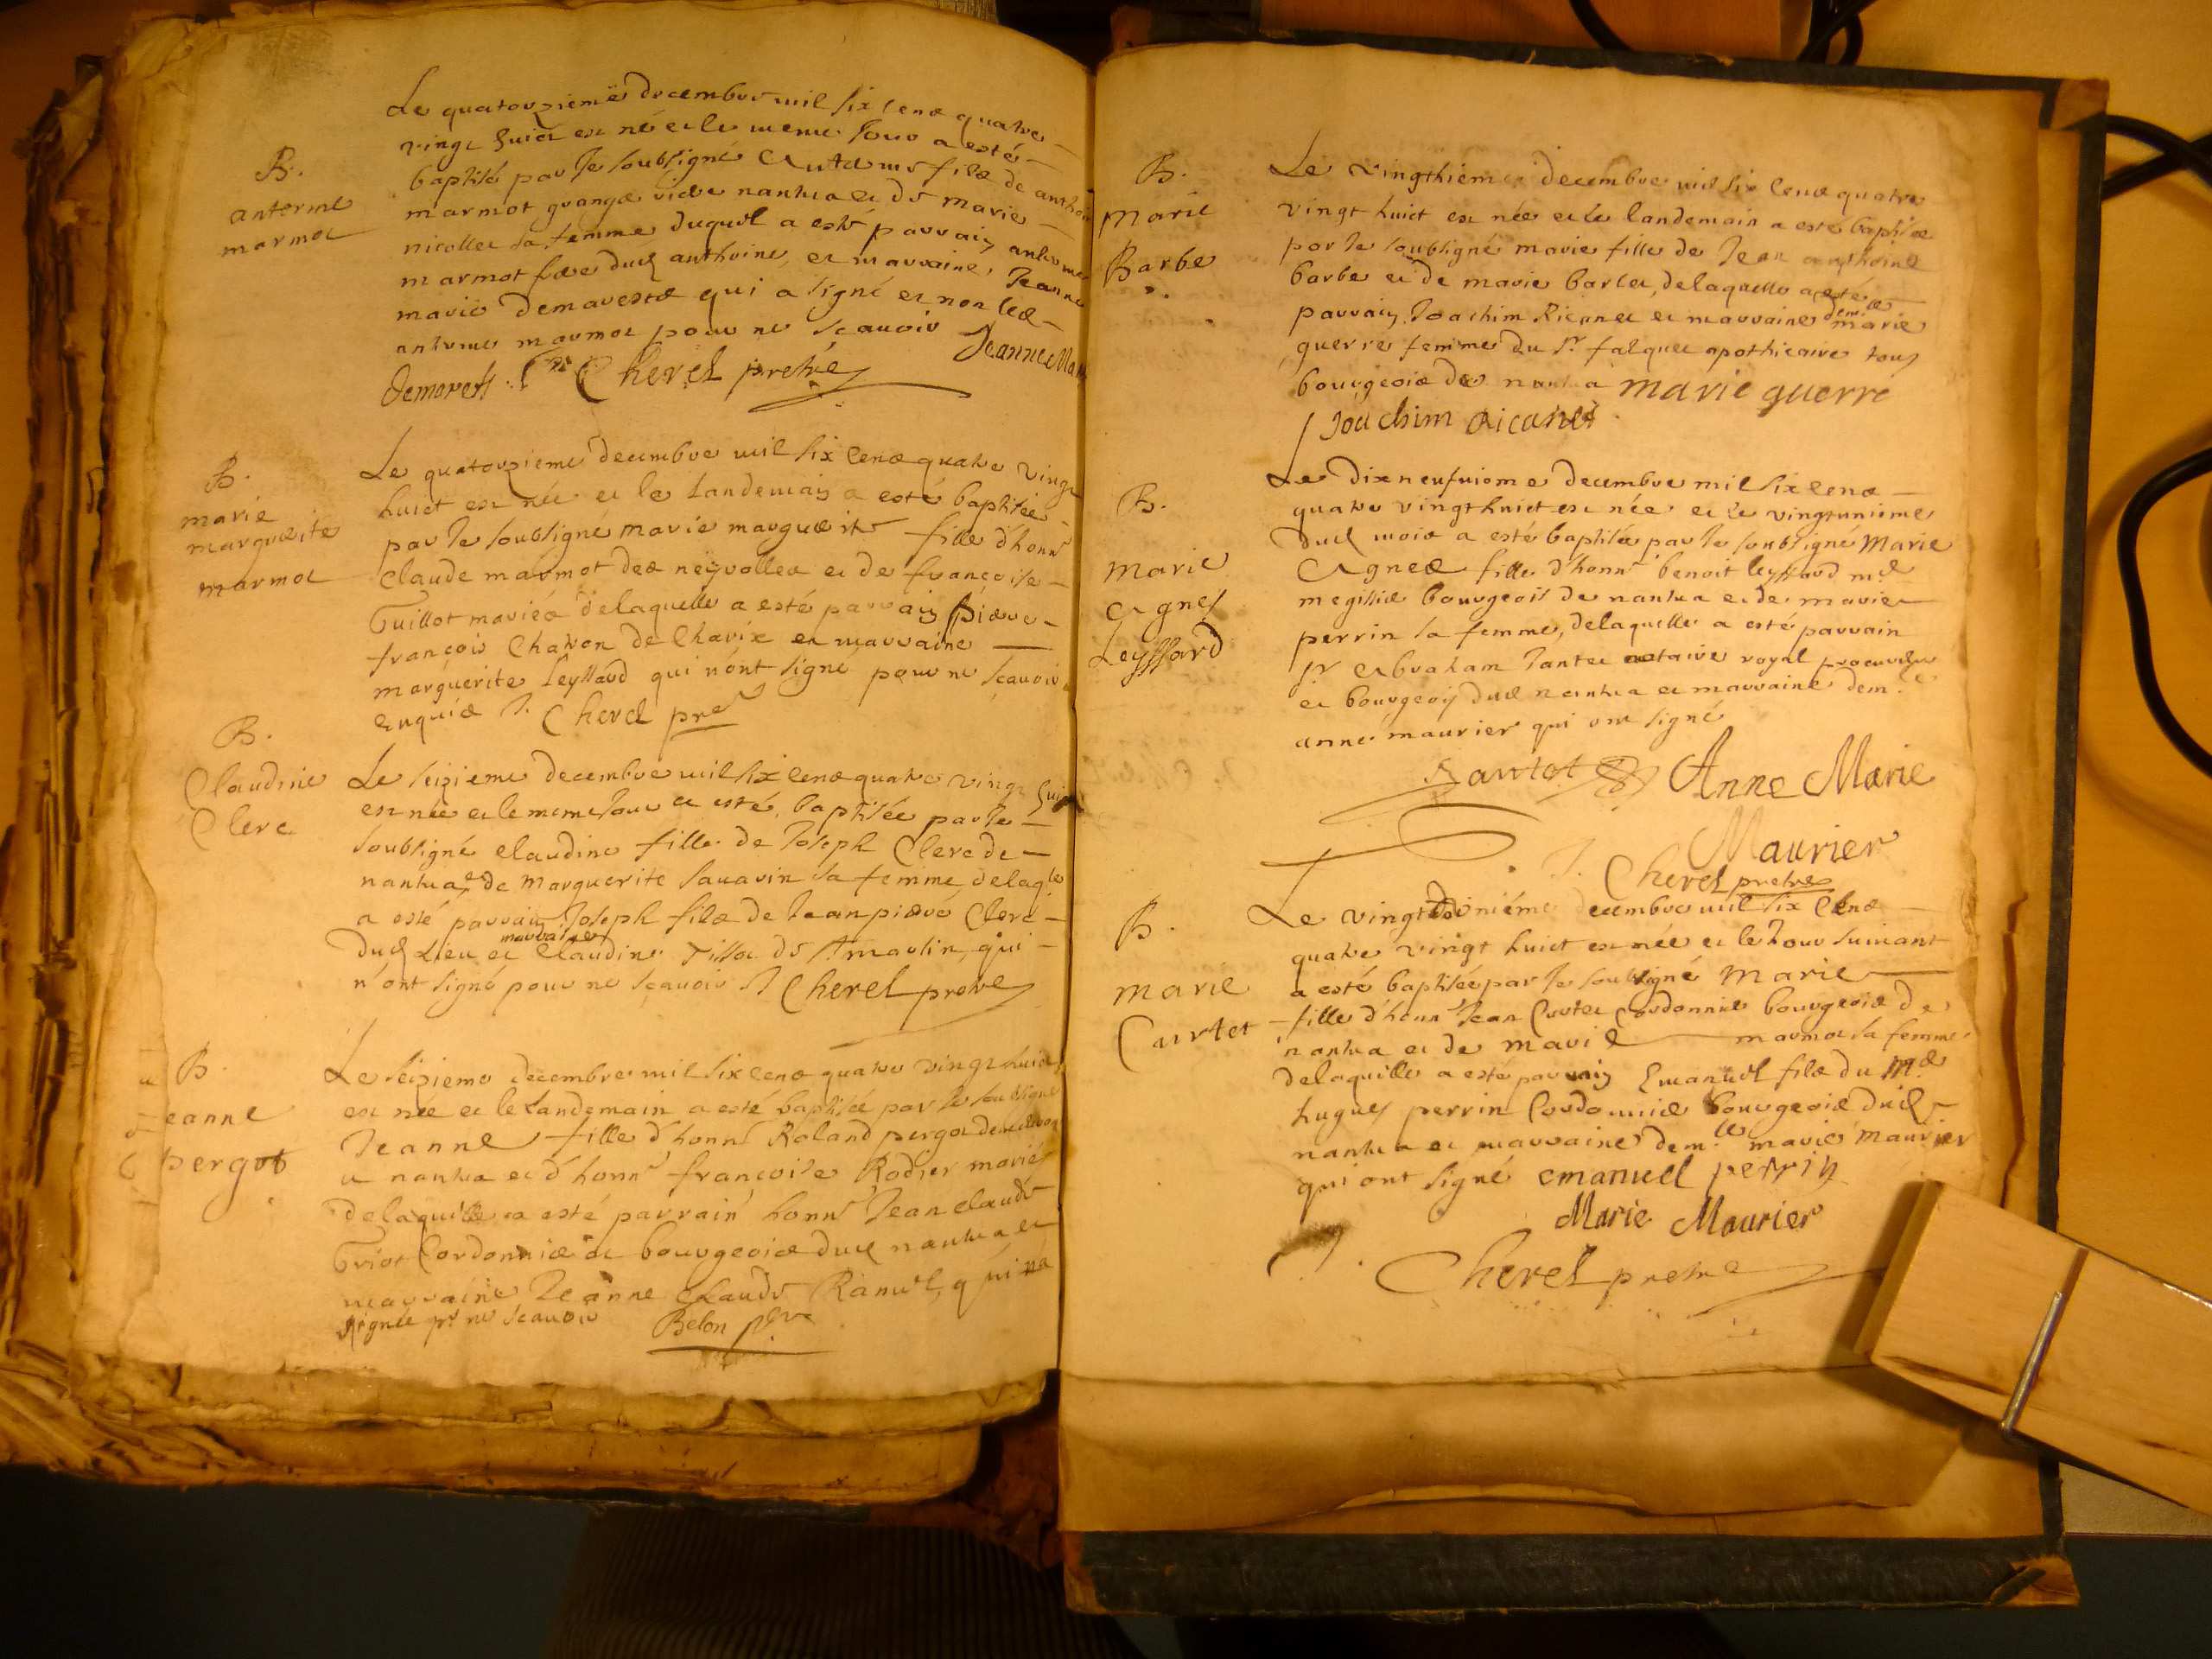 B.
anterme
marmot
Le quatorzieme decembre mil six cens quatre
vingt huict est né et le meme jour a esté
baptisé par je soubsigné Anterme fils de anthoine
marmot grangé rière nantua et de marie
nicollet sa femme duquel a esté parrain anterme
marmot frere dud anthoine, et marraine, Jeanne
marie demarests qui a signé et non led
anterme marmot pour ne scavoir Jeanne Ma
demorets Cherel pretre
B.
marie
marguerite
marmot
Le quatorzieme decembre mil six cens quatre vingt
huict est née et le landemain a esté baptisée
par je soubsigné marie marguerite fille d'honn
Claude marmot des neyrolles et de françoise
Guillot mariés delaquelle a esté parrain pierre
françois Chatron de Charix et marraine
marguerite Leyssard qui n'ont signé pour ne scavoir
enquis J. Cherel pre
B.
Claudine
Clerc
Le seizieme decembre mil six cens quatre vingt huict
est née et le meme jour a esté baptisée par je
soubsigné claudine fille de Joseph Clerc de
nantua et de Marguerite sauarin sa femme, delaqle
a esté parrain Joseph fils de Jean pierre Clerc
marraine
dud Lieu et Claudine Tissot de St martin, qui
n'ont signé pour ne scavoir J Cherel pretre
B.
Jeanne
pergot
Le seizieme decembre mil six cens quatre vingt huict
est née et le Landemain a esté baptisée par je soubsigné
Jeanne fille d'honn Roland pergot
a nantua et d'honn françoise Rodier mariés
delaquelle a esté parrain honn Jean claude
Griot Cordonnier et bourgeois dud nantua et
marraine Jeanne Claude Ranuel, qui na
signée pr ne scavoir Belon ptre
B.
Marie
Barbe
Le vingthieme decembre mil six cens quatre
vingt huict est née et le landemain a esté baptisée
par je soubsigné marie fille de Jean anthoine
barbe et de marie barlet, delaquelle a esté
parrain Joachim Ricanet et marraine demle marie
guerre femme du Sr falquet apothicaire tous
bourgeois de nantua marie guerre
Joachim Ricanet
B.
Marie
Agnes
Leyssard
Le dixneufuiome decembre mil six cens
quatre vingt huict est née et le vingtunieme
dud mois a esté baptisée par je soubsigné Marie
Agnes fille d'honn benoit leyssard md
megissie bourgeois de nantua et de marie
perrin sa femme, delaquelle a esté parrain
Sr Abraham Jantet notaire royal procureur
et bourgeois dud nantua et marraine demle
anne maurier qui ont signé
Jantet Anne Marie
Maurier
J. Cherel pretre
B.
Marie
Curtet
Le vingt unième decembre mil six Cens
quatre vingt huict est née et le jour suiuant
a esté baptisée par je soubsigné Marie
fille d'honn Jean Curtet Cordonnie bourgeois de
nantua et de marie marmot sa femme
delaquelle a esté parrain Emanuel fils du Md
hugues perrin Cordonnie bourgeois dud
nantua et marraine demle marie Maurier
qui ont signé emanuel perrin
Marie Maurier
J. Cherel pretre